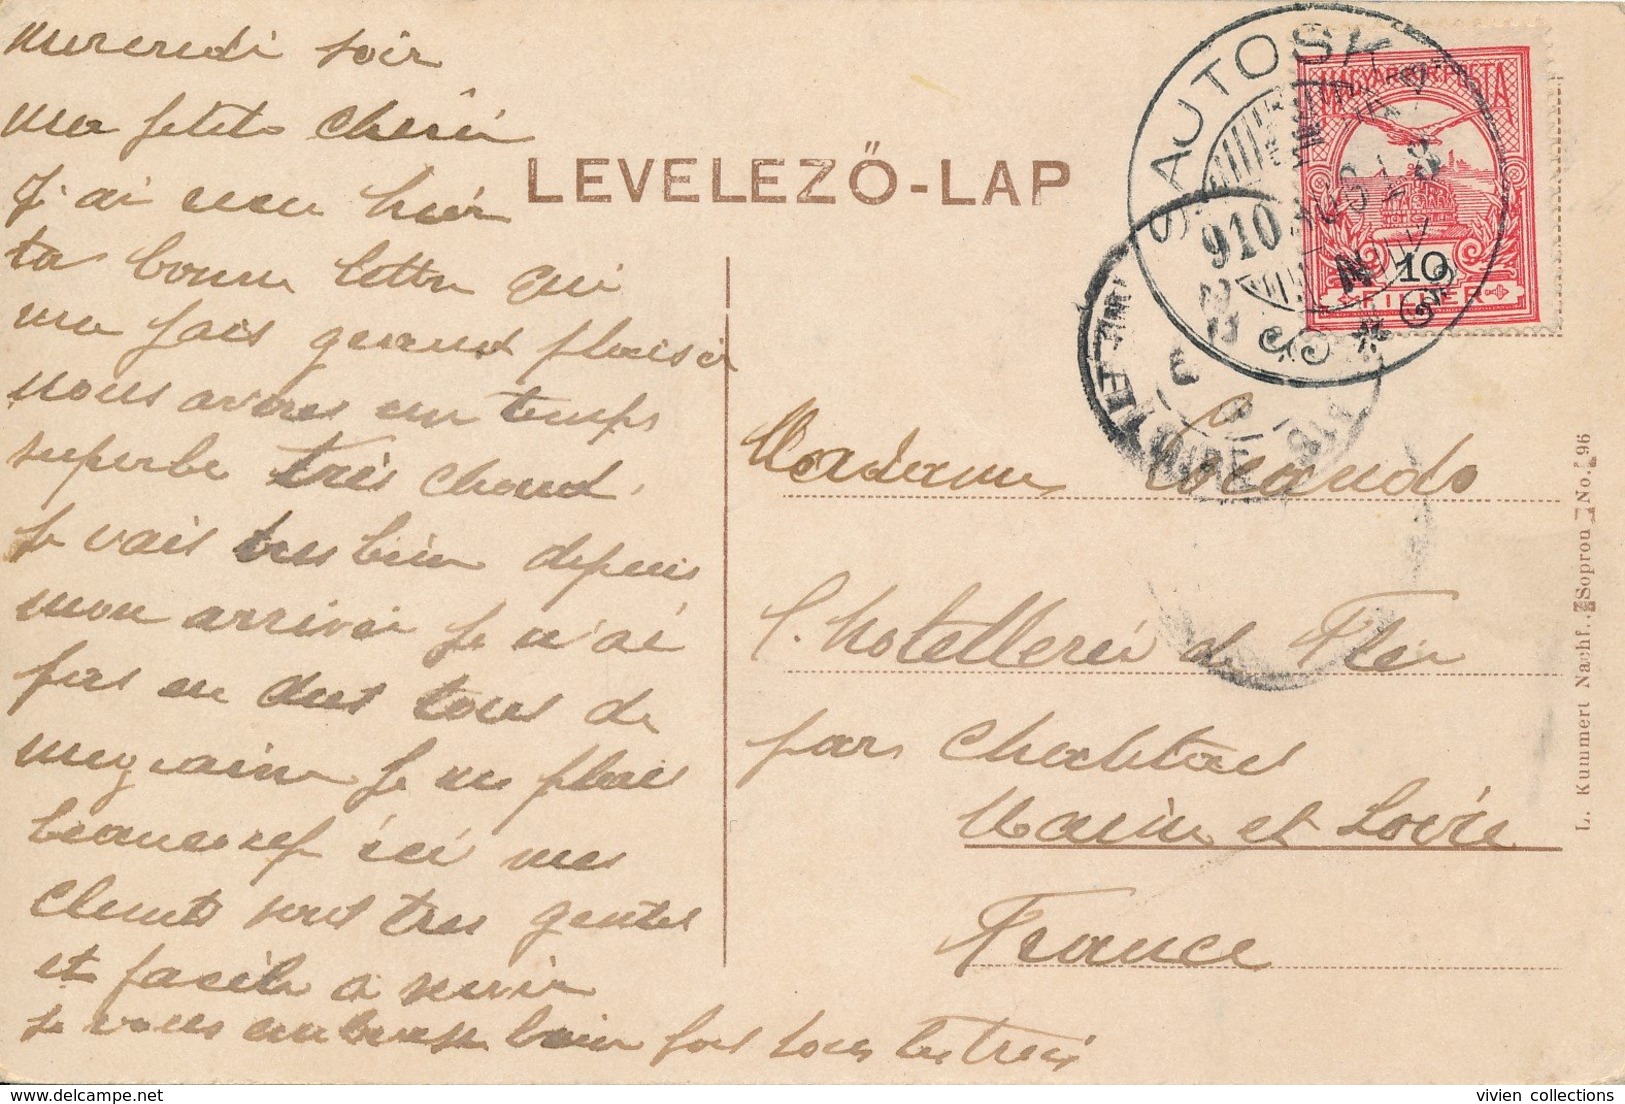 mercredi soir
ma petite chérie
J'ai reçu hier
ta bonne lettre qui
ma fais grand plaisir
nous avons un temps
superbe très chaud,
Je vais tres bien depuis
mon arrivée Je n'ai
pas eu du tout de
megraine Je me plais
beaucoup ici mes
clients sont tres gentes
et facile a servir
Je vous embrasse bien fort tous les trois
LEVELEZŐ-LAP
SAUTOSKA
910
MAGYAR KIR. POSTA
10
FILLER
Madame
l'hotellerie de Flée
par
Maine et Loire
France
L. Kummert Nachf., Sopron No. 96
vivien collections